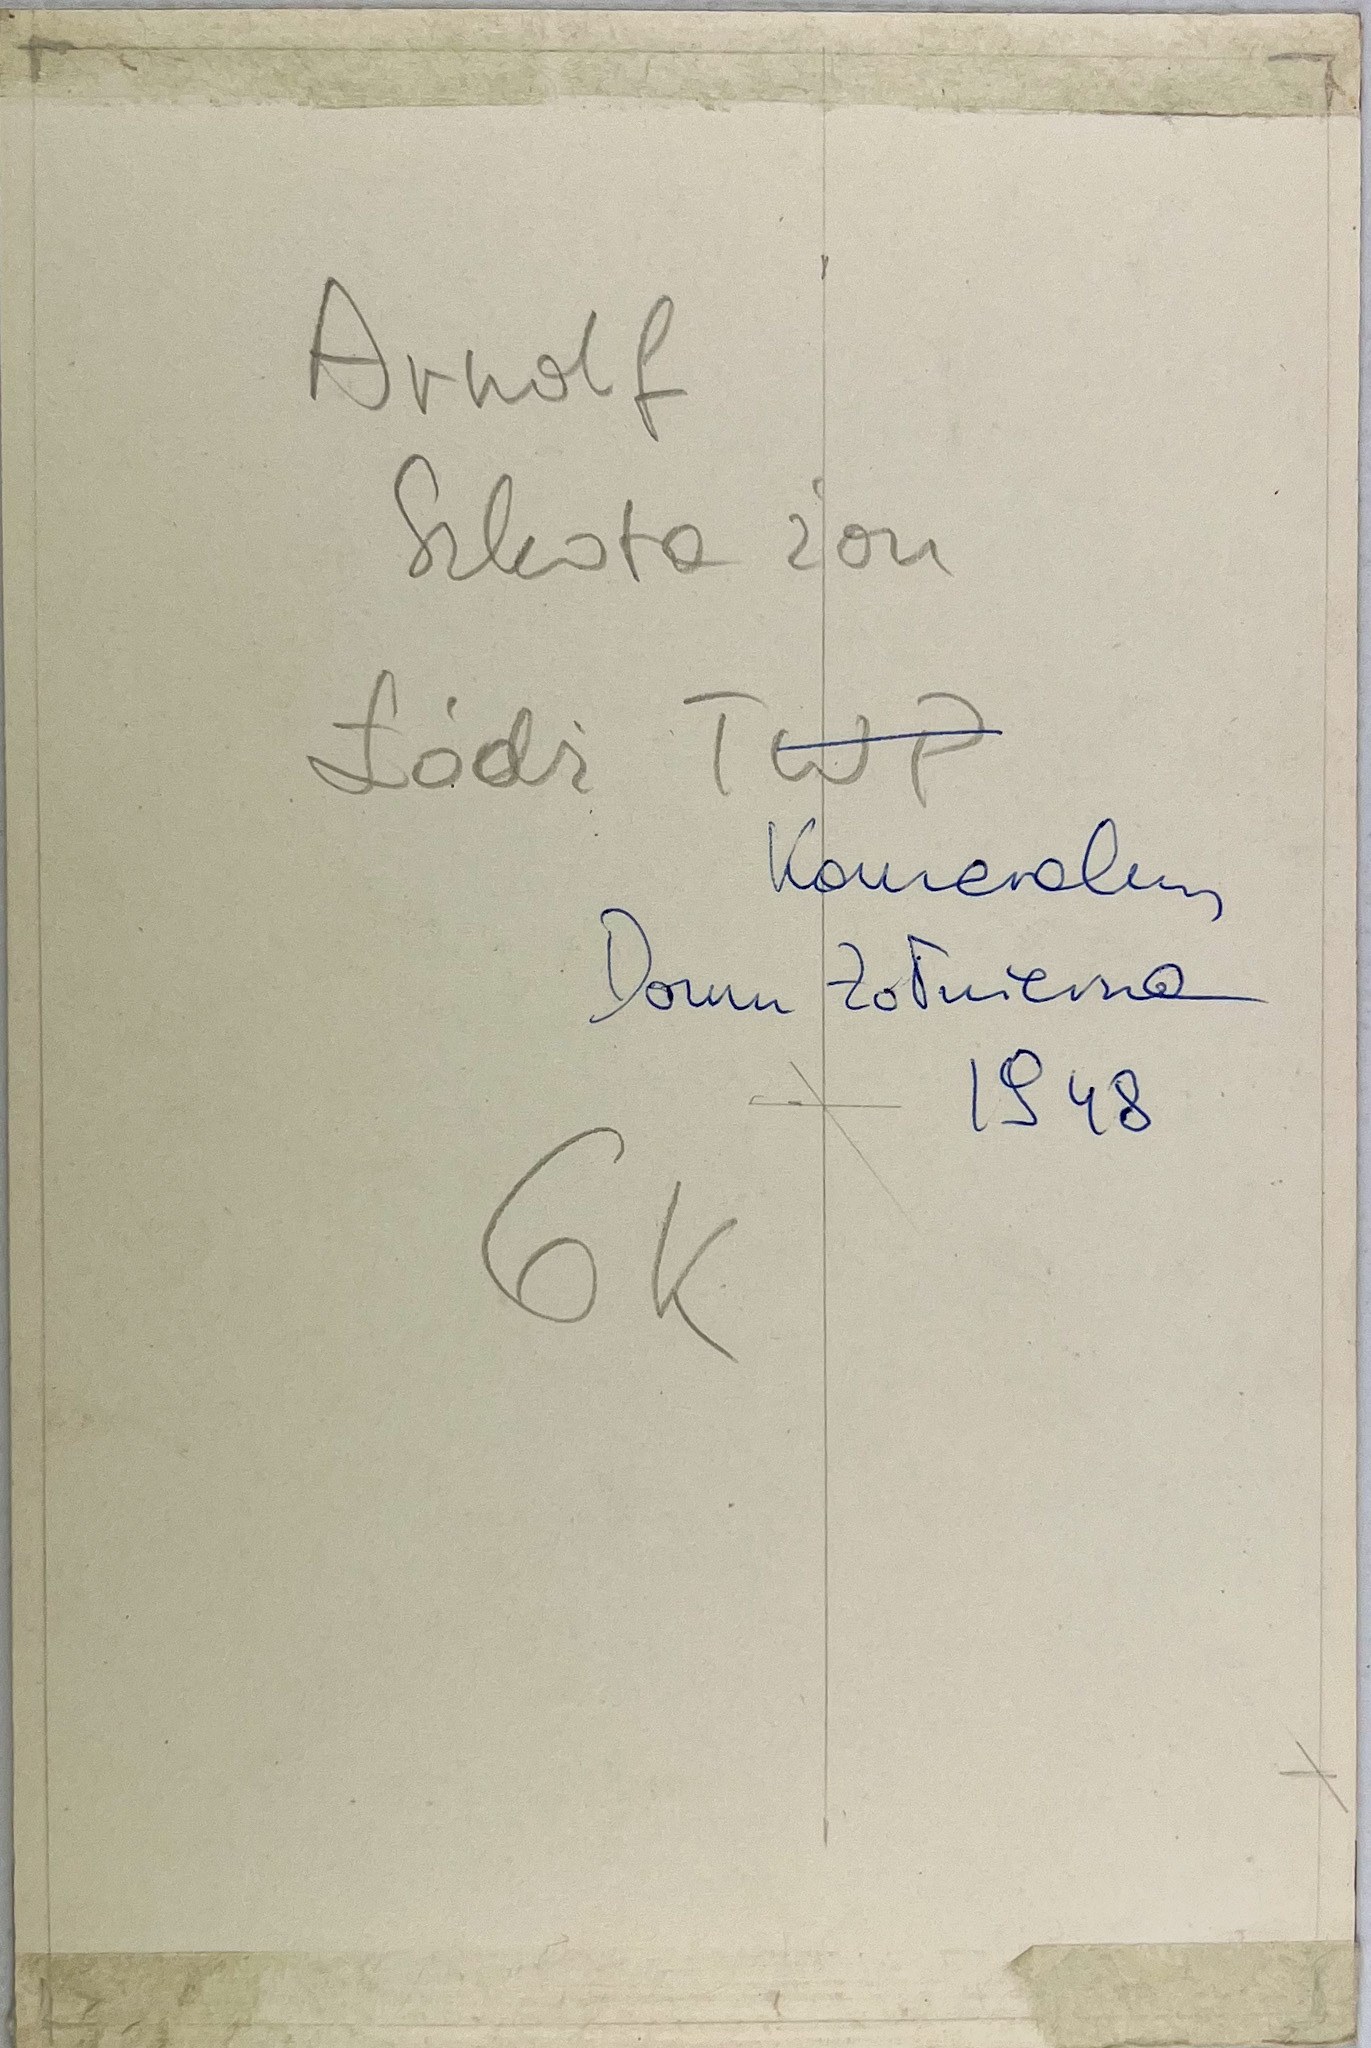 Arnolf
Szkoła żon
Łódź TWP
Kameralny
Domu Żołnierza
1948
6K